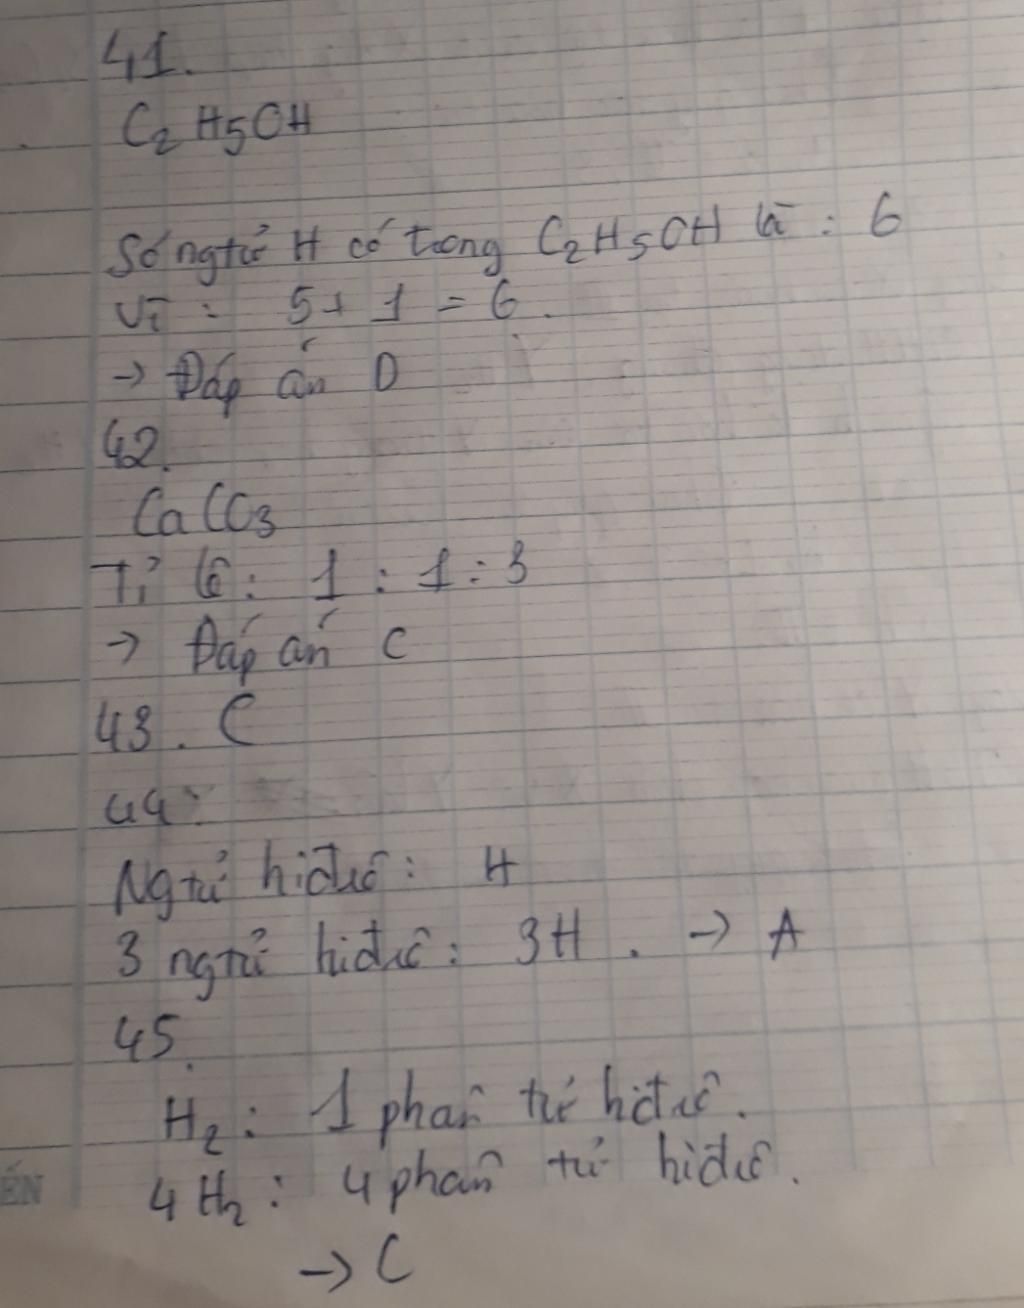 41.
C₂H5OH
Số ngtử H có trong C₂H5OH là : 6
Vì : 5 + 1 = 6.
→ Đáp án D
42.
CaCO3
Tỉ lệ : 1 : 1 : 3
→ Đáp án C
43. C
44:
Ngtử hiđrô : H
3 ngtử hiđrô : 3H . → A
45.
H₂ : 1 phân tử hiđrô.
4H₂ : 4 phân tử hiđrô.
→ C